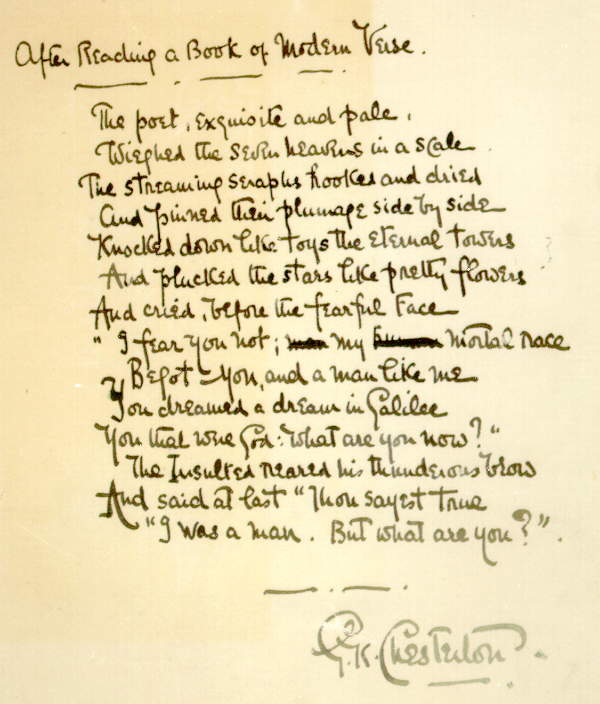 After Reading a Book of Modern Verse.
The poet, exquisite and pale,
Wieghed the seven heavens in a scale
The streaming seraphs hooked and dried
And pinned their plumage side by side
Knocked down like toys the eternal towers
And plucked the stars like pretty flowers
And cried, before the fearful Face
"I fear you not; my mortal race
Begot you, and a man like me
You dreamed a dream in Galilee
You that were God: what are you now?"
The Insulted reared his thunderous brow
And said at last "Thou sayest true
"I was a man. But what are you?".
G.K. Chesterton.